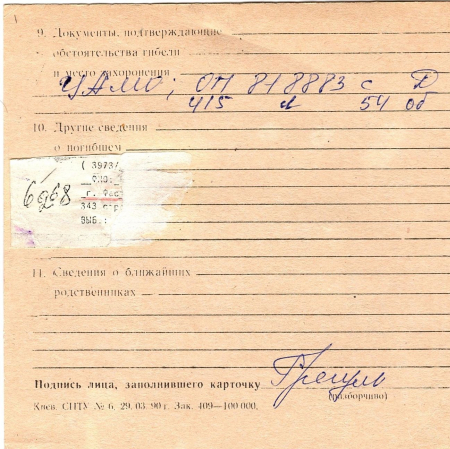 9. Документы, подтверждающие
обстоятельства гибели
и место захоронения
ЦАМО, ОП 818883 с Д
415 л 54 об
10. Другие сведения
о погибшем
( 3973/
ФИО:
6968 г.
343 стр
ВЫБ.:
11. Сведения о ближайших
родственниках
Подпись лица, заполнившего карточку
(разборчиво)
Киев. СПТУ № 6. 29. 03. 90 г. Зак. 409—100 000.